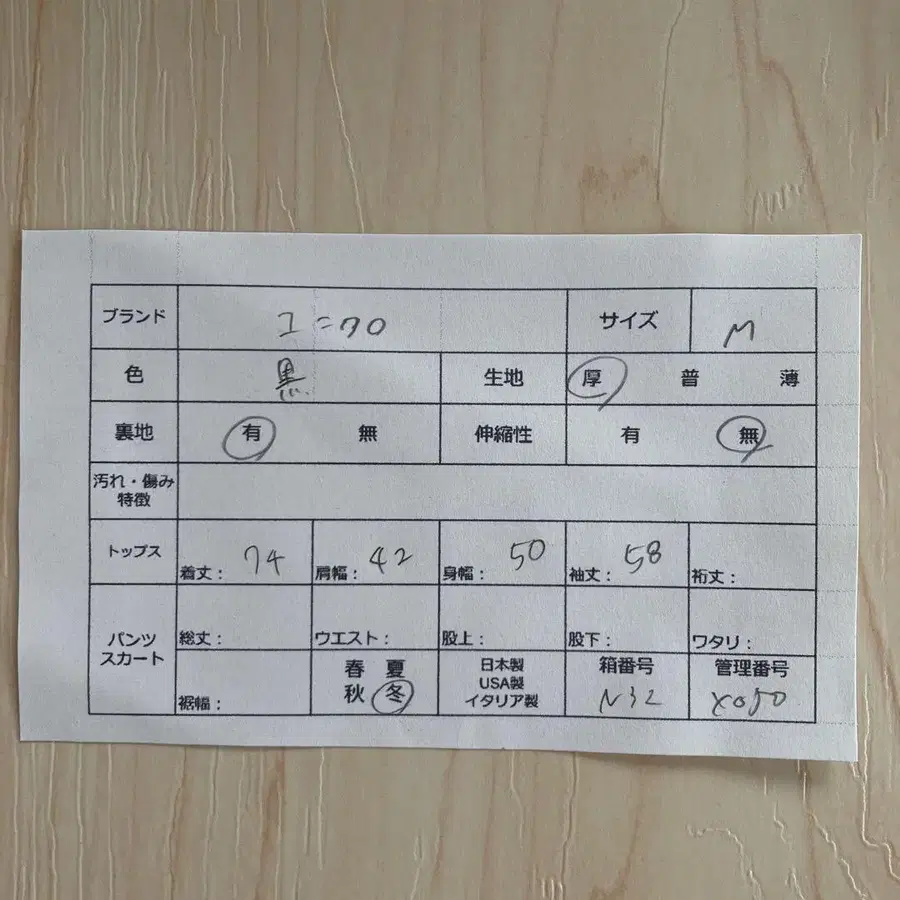 ブランド ユニクロ サイズ M
色 黒 生地 厚 普 薄
裏地 有 無 伸縮性 有 無
汚れ・傷み
特徴
トップス 着丈: 74 肩幅: 42 身幅: 50 袖丈: 58 裄丈:
パンツ
スカート
総丈: ウエスト: 股上: 股下: ワタリ:
裾幅:
春 夏
秋 冬
日本製
USA製
イタリア製
箱番号
N32
管理番号